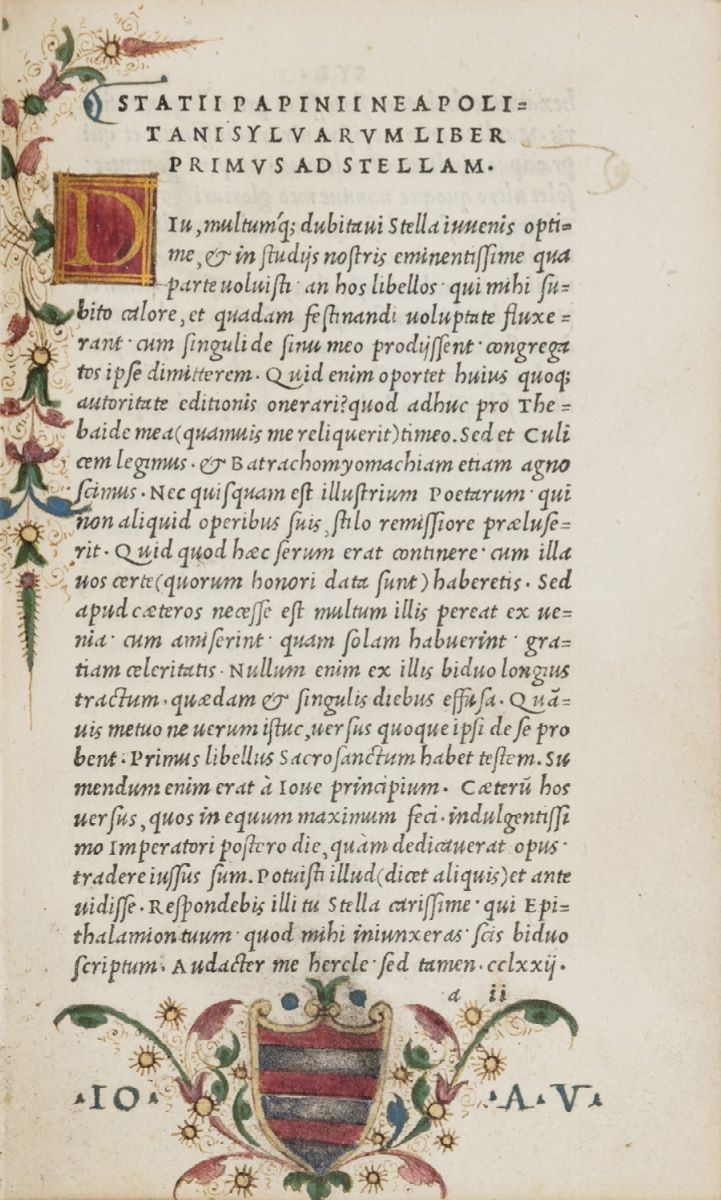 STATII PAPINII NEAPOLI=
TANI SYLVARVM LIBER
PRIMVS AD STELLAM.
DIu, multumq́; dubitaui Stella iuuenis opti=
me, & in ſtudijs noſtris eminentiſſime qua
parte uoluiſti · an hos libellos · qui mihi ſu=
bito calore, et quadam feſtinandi uoluptate fluxe=
rant · cum ſinguli de ſinu meo prodijſſent · congrega
tos ipſe dimitterem. Quid enim oportet huius quoq;
autoritate editionis onerari? quod adhuc pro The=
baide mea (quamuis me reliquerit) timeo. Sed et Culi
cem legimus · & Batrachomyomachiam etiam agno
ſcimus · Nec quiſquam eſt illuſtrium Poetarum · qui
non aliquid operibus ſuis, ſtilo remiſſiore præluſe=
rit · Quid quod hæc ſerum erat continere · cum illa
uos certe (quorum honori data ſunt) haberetis · Sed
apud cæteros neceſſe eſt multum illis pereat ex ue=
nia · cum amiſerint · quam ſolam habuerint · gra=
tiam celeritatis · Nullum enim ex illis biduo longius
tractum, quædam & ſingulis diebus effuſa. Quã=
uis metuo ne uerum iſtuc, uerſus quoque ipſi de ſe pro
bent : Primus libellus Sacroſanctum habet teſtem. Su
mendum enim erat à Ioue principium. Cæterũ hos
uerſus, quos in equum maximum feci · indulgentiſſi
mo Imperatori poſtero die, quàm dedicauerat opus ·
tradere iuſſus ſum. Potuiſti illud (dicet aliquis) et ante
uidiſſe · Reſpondebis illi tu Stella cariſſime · qui Epi=
thalamion tuum · quod mihi iniunxeras · ſcis biduo
ſcriptum. Audacter me hercle · ſed tamen · cclxxij.
a ii
·IO· ·A·V·